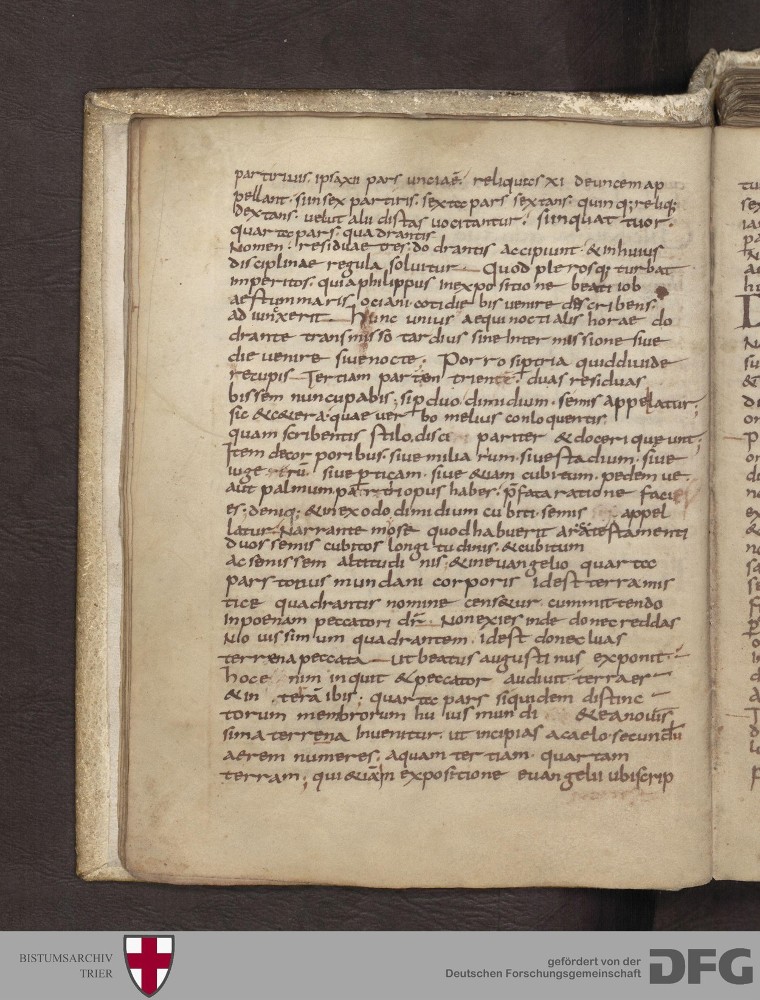 partiriuis. ipsa xii pars unciae. reliquas xi deuncem ap
pellant. sin sex partiris. sexta pars sextans. quinq; reliq;
dextans. uelut alii distas uocitantur. sin quattuor.
quarta pars. quadrantis
Nomen. residuae tres. dodrantis accipiunt. & in huius
disciplinae regula soluitur. Quod plerosq; turbat
imperitos. quia philippus in expositione beati iob
aestum maris ociani. cotidie bis uenire describens.
adiunxerit. hunc unius aequinoctialis horae do
drante transmisso tardius sine intermissione siue
die uenire siue nocte. Porro si p tria quid diuide
re cupis Tertiam partem trientem duas residuas
bissem nuncupabis; si p duo. dimidium. semis appellatur;
sic & c&era. quae uerbo melius conloquentis.
quam scribentis stilo. disci pariter & doceri queunt;
Item de corporibus. siue miliarum. siue stadium. siue
iugerum siue pticam. siue &iam cubitum. pedem ue.
aut palmum partiri opus habes. p̄fata ratione facies
es. deniq; & in exodo dimidium cubiti. semis appel
latur. Narrante mose quod habuerit arca testamenti
duos semis cubitos longitudinis. & cubitum
ac semissem altitudinis. & in euangelio quarta
pars totius mundani corporis idest terra mis
tice quadrantis nomine cens&ur. cum mittendo
in poenam peccatori dr̄. Non exies inde donec reddas
Nouissimum quadrantem. idest donec luas
terrena peccata ut beatus augustinus exponit.
hoc enim inquit & peccator audiuit terra es
& in terā ibis; quarta pars siquidem distinc
torum membrorum huius mundi & ea nouis
sima terrena inuenitur. ut incipias a caelo. secundū
aerem numeres; aquam tertiam. quartam
terram; qui &iam in expositione euangelii ubi scrip
BISTUMSARCHIV
TRIER
gefördert von der
Deutschen Forschungsgemeinschaft
DFG